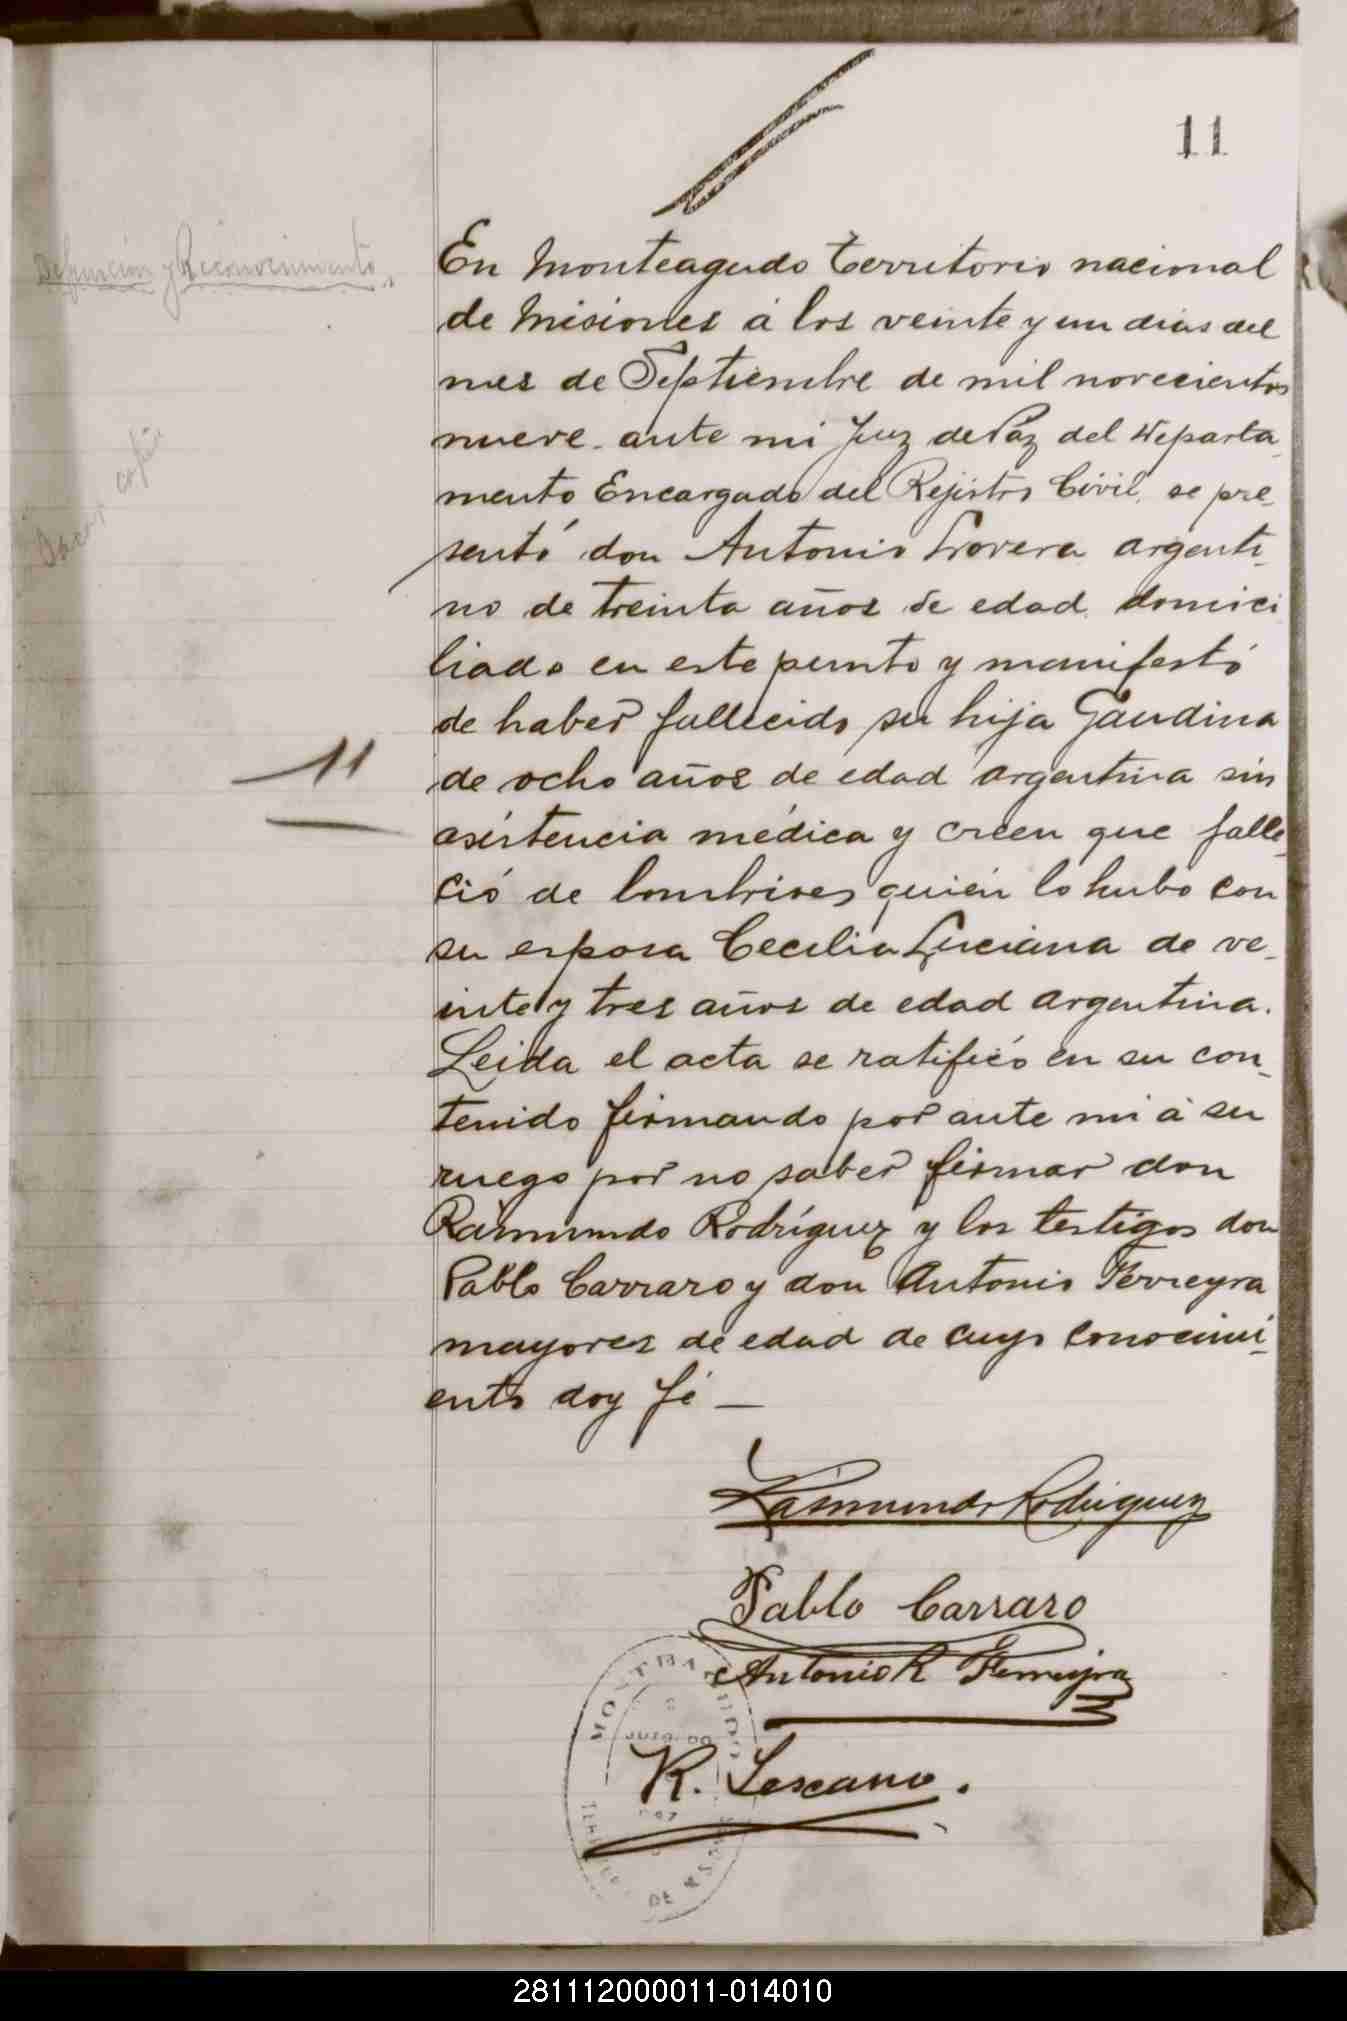 11
Defunción y Reconocimiento
En Monteagudo territorio nacional
de Misiones á los veinte y un dias del
mes de Septiembre de mil novecientos
nueve ante mi Juz de Paz del Departa-
mento Encargado del Rejistro Civil, se pre-
sentó don Antonio Lovera argenti-
no de treinta años de edad domici
liado en este punto y manifestó
de haber fallecido su hija Gaudina
11
de ocho años de edad argentina sin
asistencia médica y creen que falle-
ció de lombrises quién lo hubo con
su esposa Cecilia Luciana de ve-
inte y tres años de edad argentina.
Leida el acta se ratificó en su con-
tenido firmando por ante mi á su
ruego por no saber firmar don
Raimundo Rodríguez y los testigos don
Pablo Carraro y don Antonio Ferreyra
mayores de edad de cuyo conocimi-
ento doy fé —
Raimundo Rodriguez
Pablo Carraro
Antonio R Ferreyra
R. Lescano.
281112000011-014010